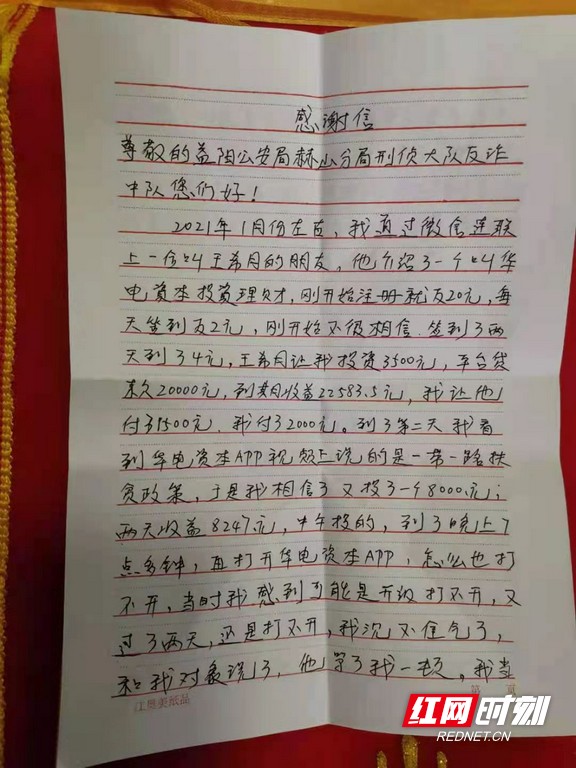 感谢信
尊敬的益阳公安局赫山分局刑侦大队反诈
中队您们好!
2021年1月份左右，我通过微信连联
上一个叫王希月的朋友，他介绍了一个叫华
电资本投资理财，刚开始注册就反20元，每
天签到反2元，刚开始不很相信.签到了两
天到了4元，王希月让我投资3500元，平台贷
款20000元，到期收益22583.5元，我让他
付了1500元.我付了2000元。到了第二天我看
到华电资本APP视频上说的是一带一路扶
贫政策，于是我相信了又投了一个8000元;
两天收益8247元，中午投的，到了晚上7
点多钟，再打开华电资本APP，怎么也打
不开，当时我感到可能是升级打不开，又
过了两天，还是打不开，我沉不住气了，
和我对象说了，他骂了我一顿，我当
江奥美纸品
第 页
红网时刻
REDNET.CN